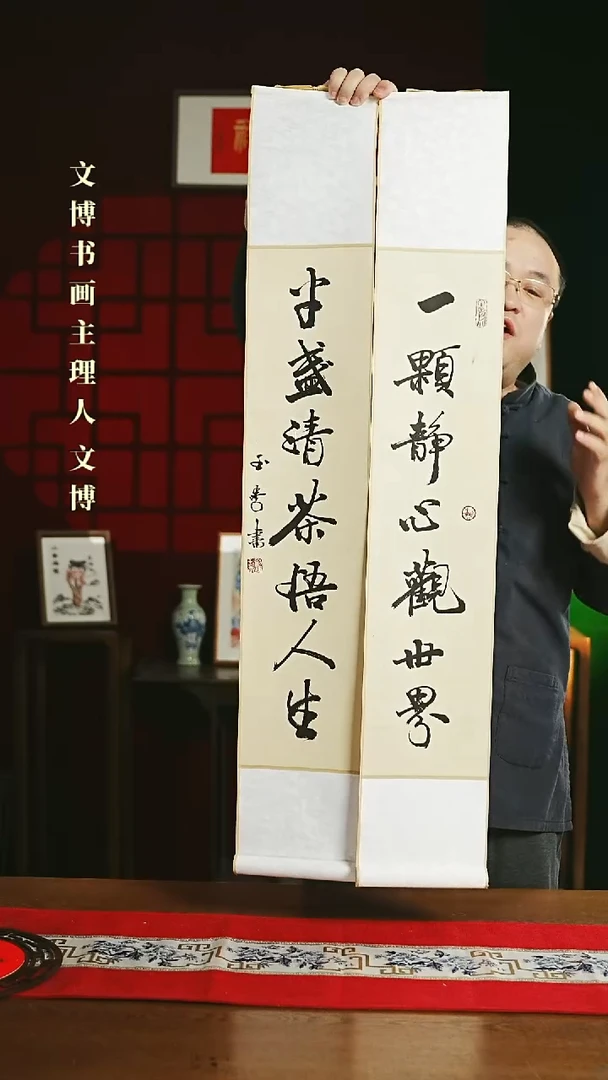 文博书画主理人 文博
一顆靜心觀世界
半盞清茶悟人生